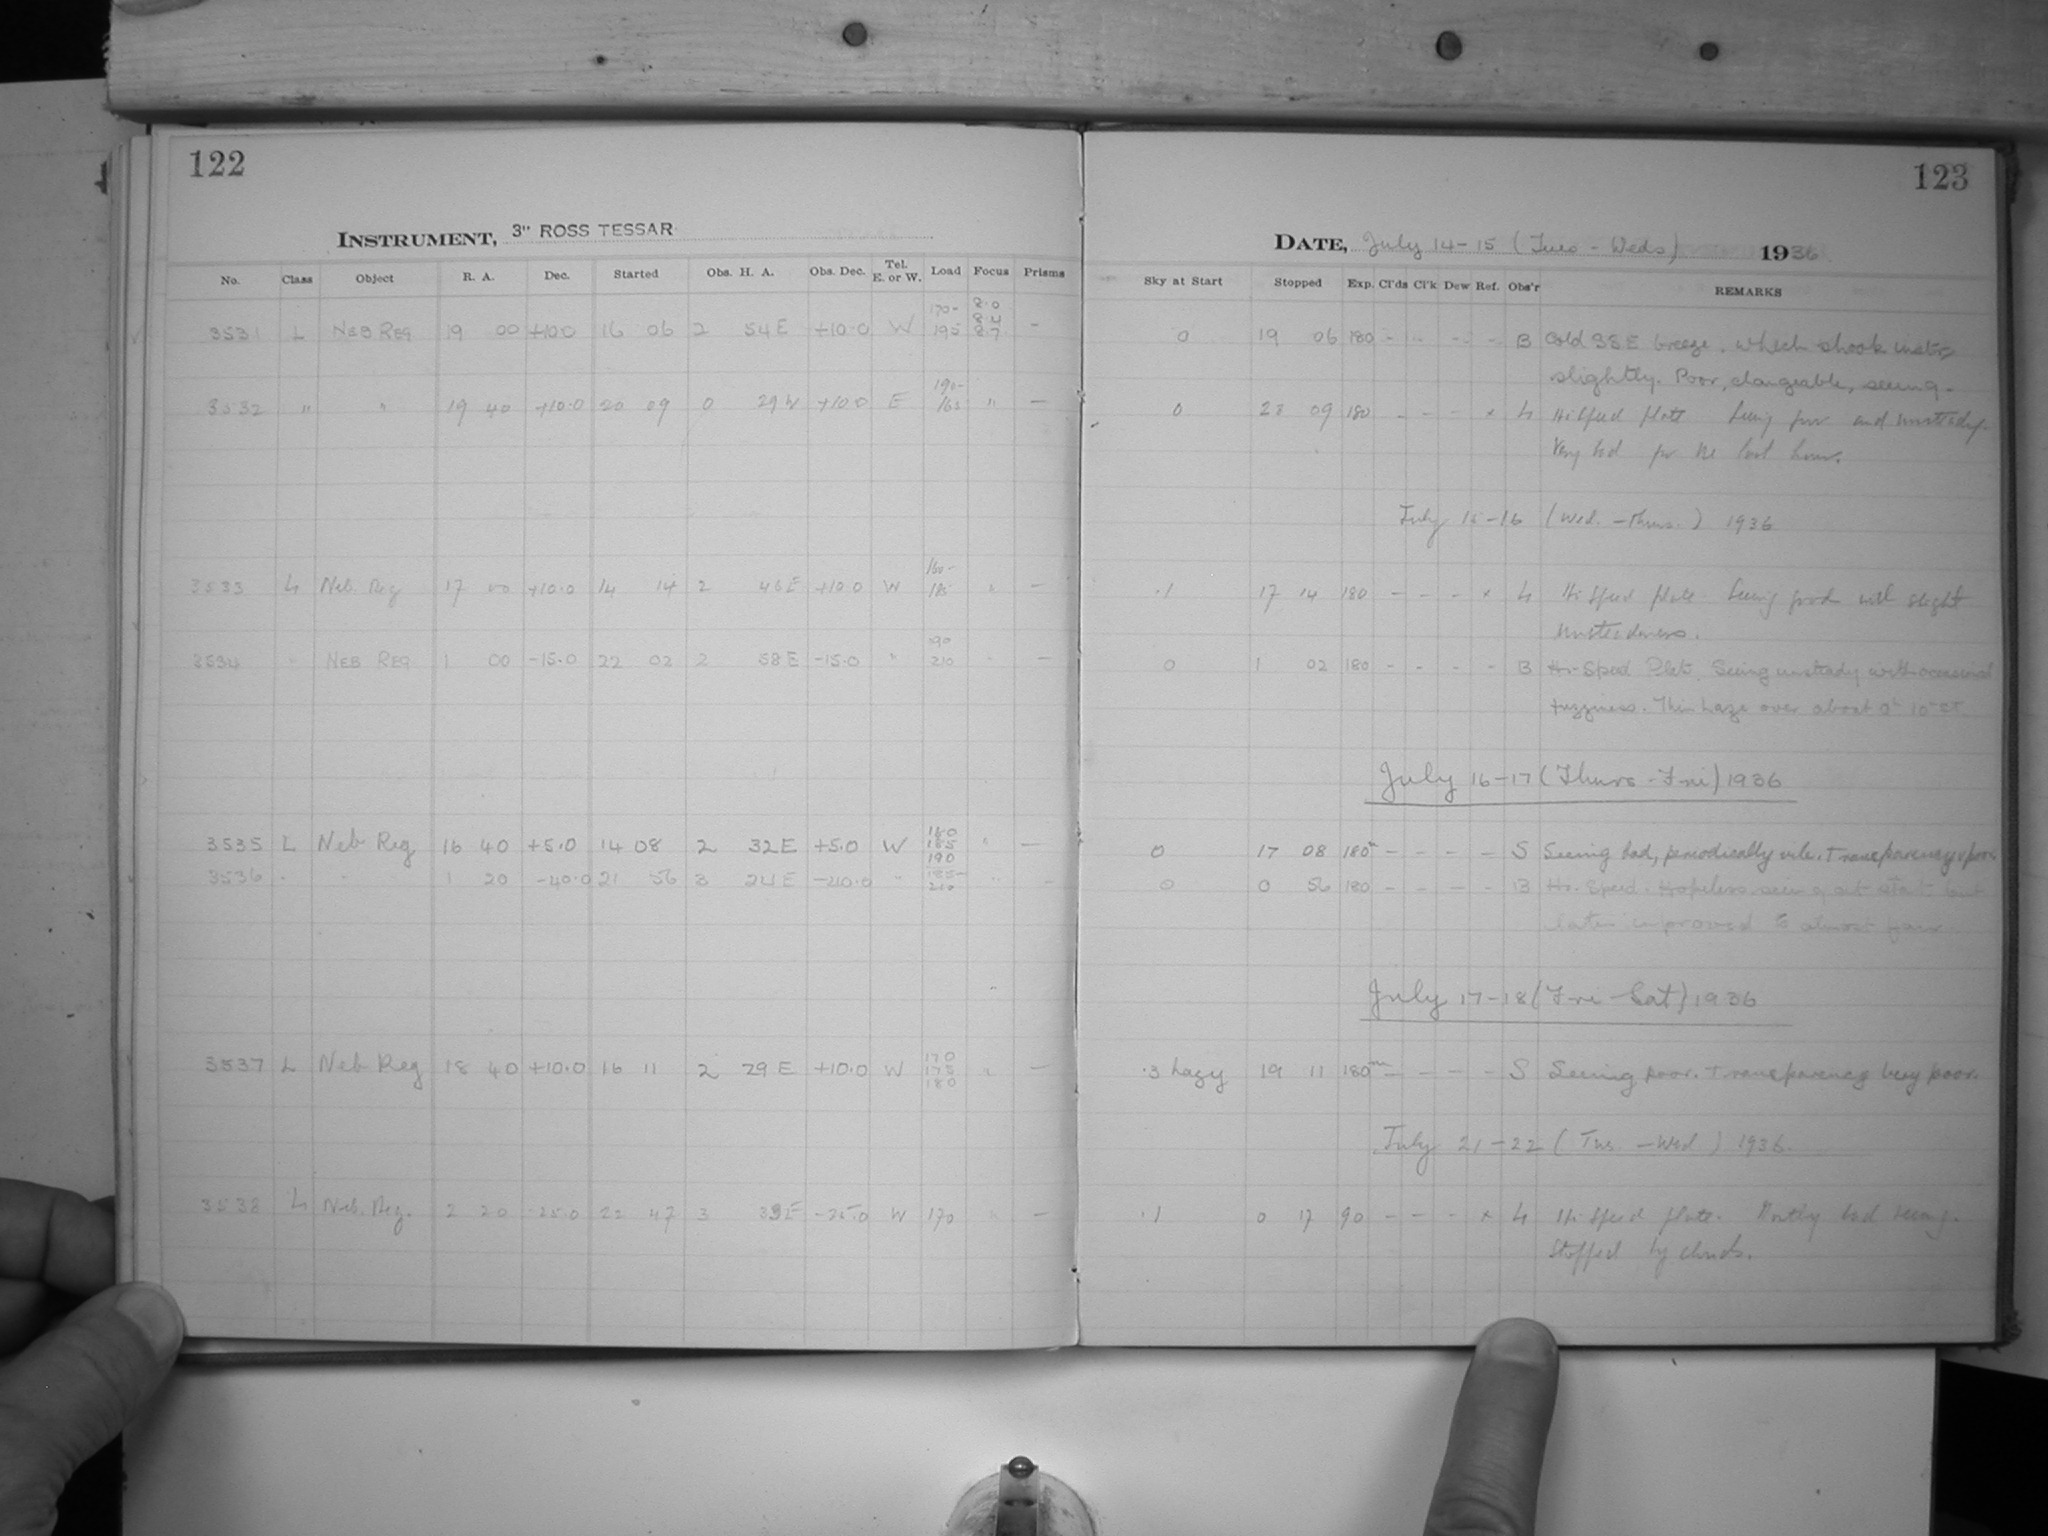 122
INSTRUMENT, 3" ROSS TESSAR
No. Class Object R. A. Dec. Started Obs. H. A. Obs. Dec. Tel. E. or W. Load Focus Prisms
3531 L NEB REG 19 00 +10.0 16 06 2 54 E +10.0 W 170- 195 8.0 8.4 8.7 -
3532 " " 19 40 +10.0 20 09 0 29 W +10.0 E 190- 165 " -
3533 L Neb. Reg 17 00 +10.0 14 14 2 46 E +10.0 W 160- 185 " -
3534 " NEB REG 1 00 -15.0 22 02 2 58 E -15.0 " 190 210 " -
3535 L Neb Reg 16 40 +5.0 14 08 2 32 E +5.0 W 180 185 190 " -
3536 " " 1 20 -40.0 21 56 3 24 E -40.0 " 185- 210 " -
3537 L Neb Reg 18 40 +10.0 16 11 2 29 E +10.0 W 170 175 180 " -
3538 L Neb. Reg. 2 20 -25.0 22 47 3 E -25.0 W 170 " -
123
DATE, July 14-15 (Tues - Weds) 1936
Sky at Start Stopped Exp. Cl'ds Cl'k Dew Ref. Obs'r REMARKS
0 19 06 180 - - - - B Cold SSE breeze, which shook
slightly. Poor, changeable, seeing.
0 23 09 180 - - - x L Hi Speed plate Seeing poor and unsteady.
Very bad for the last hour.
July 15-16 (Wed. - Thurs.) 1936
.1 17 14 180 - - - x L Hi Speed plate Seeing good with slight
unsteadiness.
0 1 02 180 - - - - B Hi-Speed Plate. Seeing unsteady with occasional
fuzziness. Thin haze over about
July 16-17 (Thurs - Fri) 1936
0 17 08 180m - - - - S Seeing bad, periodically vile. Transparency v poor.
0 0 56 180 - - - - B Hi. Speed. Hopeless seeing at start but
later improved to almost fair
July 17-18 (Fri - Sat) 1936
.3 hazy 19 11 180m - - - - S Seeing poor. Transparency very poor.
July 21-22 (Tues. - Wed.) 1936.
.1 0 17 90 - - - x L Hi Speed plate. Mostly bad seeing.
Stopped by clouds.